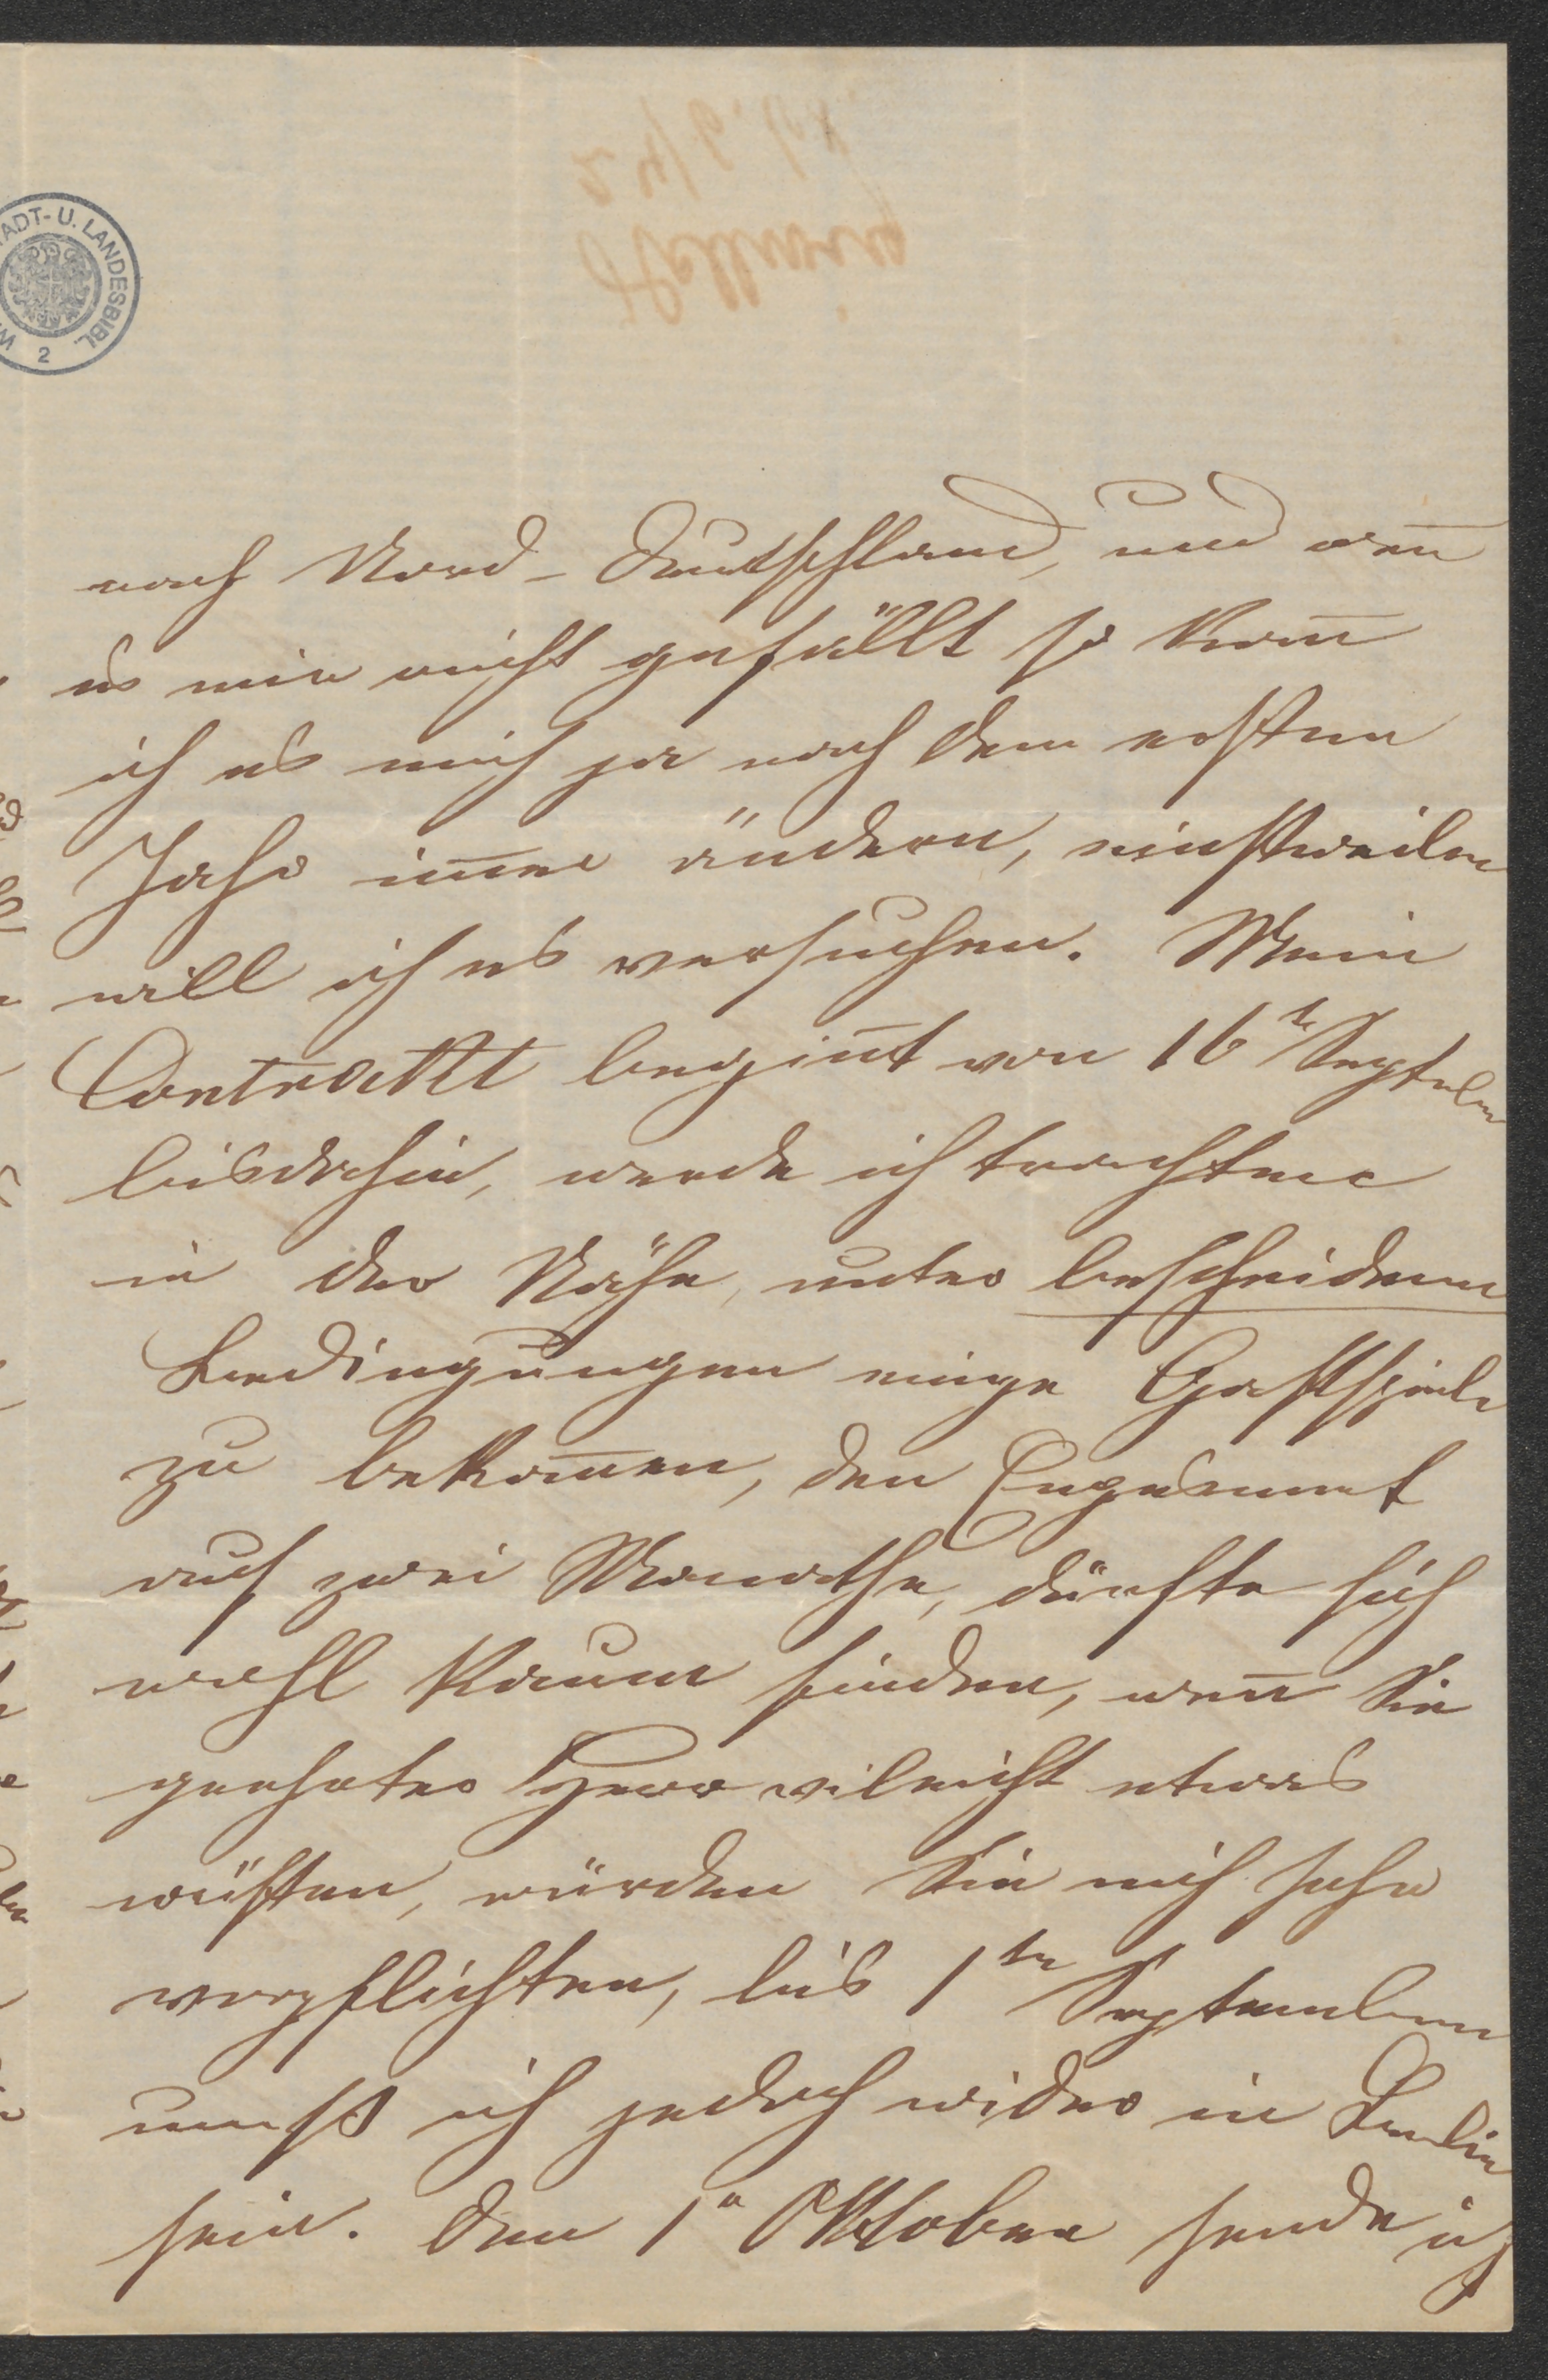 STADT- U. LANDESBIBL.
2
nach Nord-Deutschland, und weñ
es mir nicht gefällt so kañ
ich es mich ja nach dem ersten
Jahr im̅er ändern, einstweilen
will ich es versuchen. Mein
Contrakt begin̅t von 16t September
bisdahin, werde ich trachten
in der Nähe, unter bescheidenen
Bedingungen einige Gastspiele
zu bekom̅en, den Engagement
auf zwei Monathe, dürfte sich
wohl kaum finden, weñ Sie
geehrter Herr vileicht etwas
wüßten, würden Sie mich sehr
verpflichten, bis 1ten September
muß ich jedoch wider in Berlin
sein. Den 1n Oktober sende ich